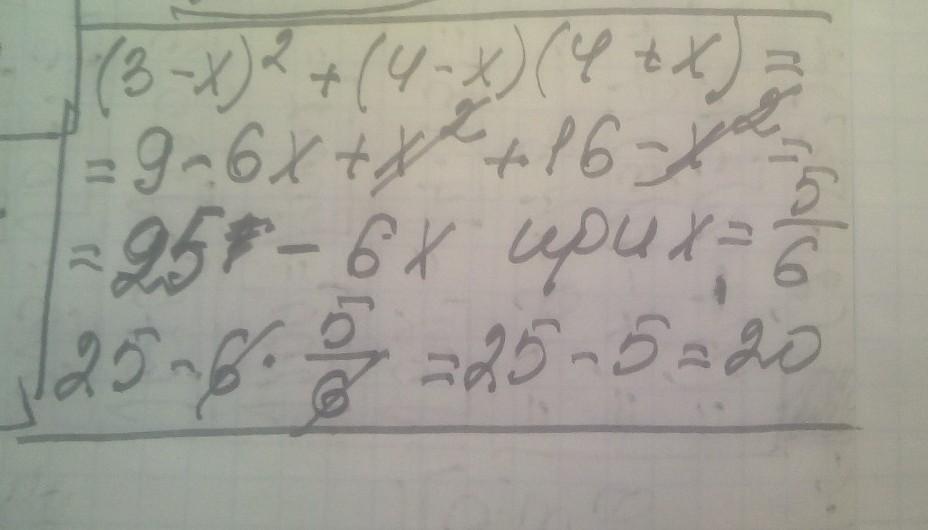 (3-x)² + (4-x)(4+x) =
= 9 - 6x + x² + 16 - x² =
= 25 - 6x при x = 5/6
25 - 6 · 5/6 = 25 - 5 = 20